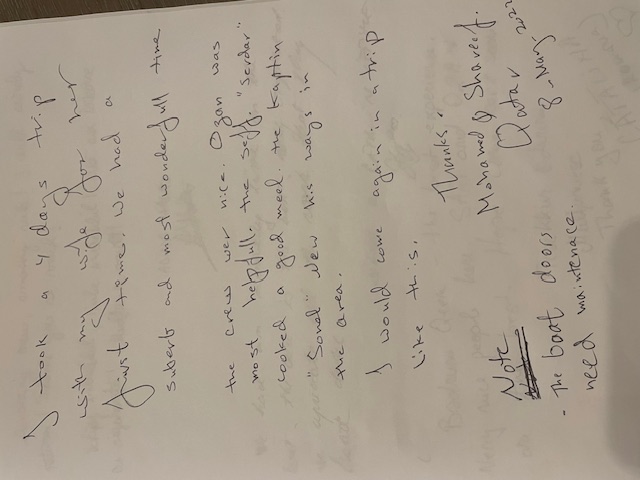 I took a 4 days trip
with my wife for her
first time. We had a
suberb and most wonderfull time
the crews wer nice. Ozan was
most helpfull. the seff. "Serdar"
cooked a good meel. the Kaptin
"Soner" New his ways in
the area.
I would come again in a trip
like this.
Thanks.
Mohamed & Shareef.
Qatar
8-May 2022
Note
- The boat doors
need maintenace.